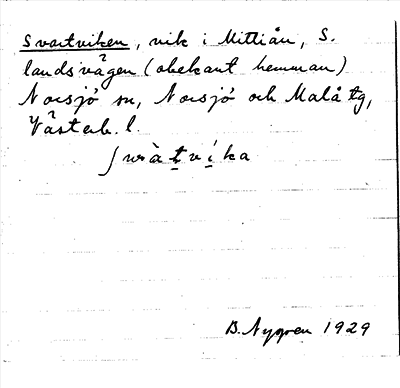 Svartviken, vik i Mittiån, S.
landsvägen (obekant hemman)
Norsjö sn, Norsjö och Malå tg,
Västerb. l.
B. Nygren 1929